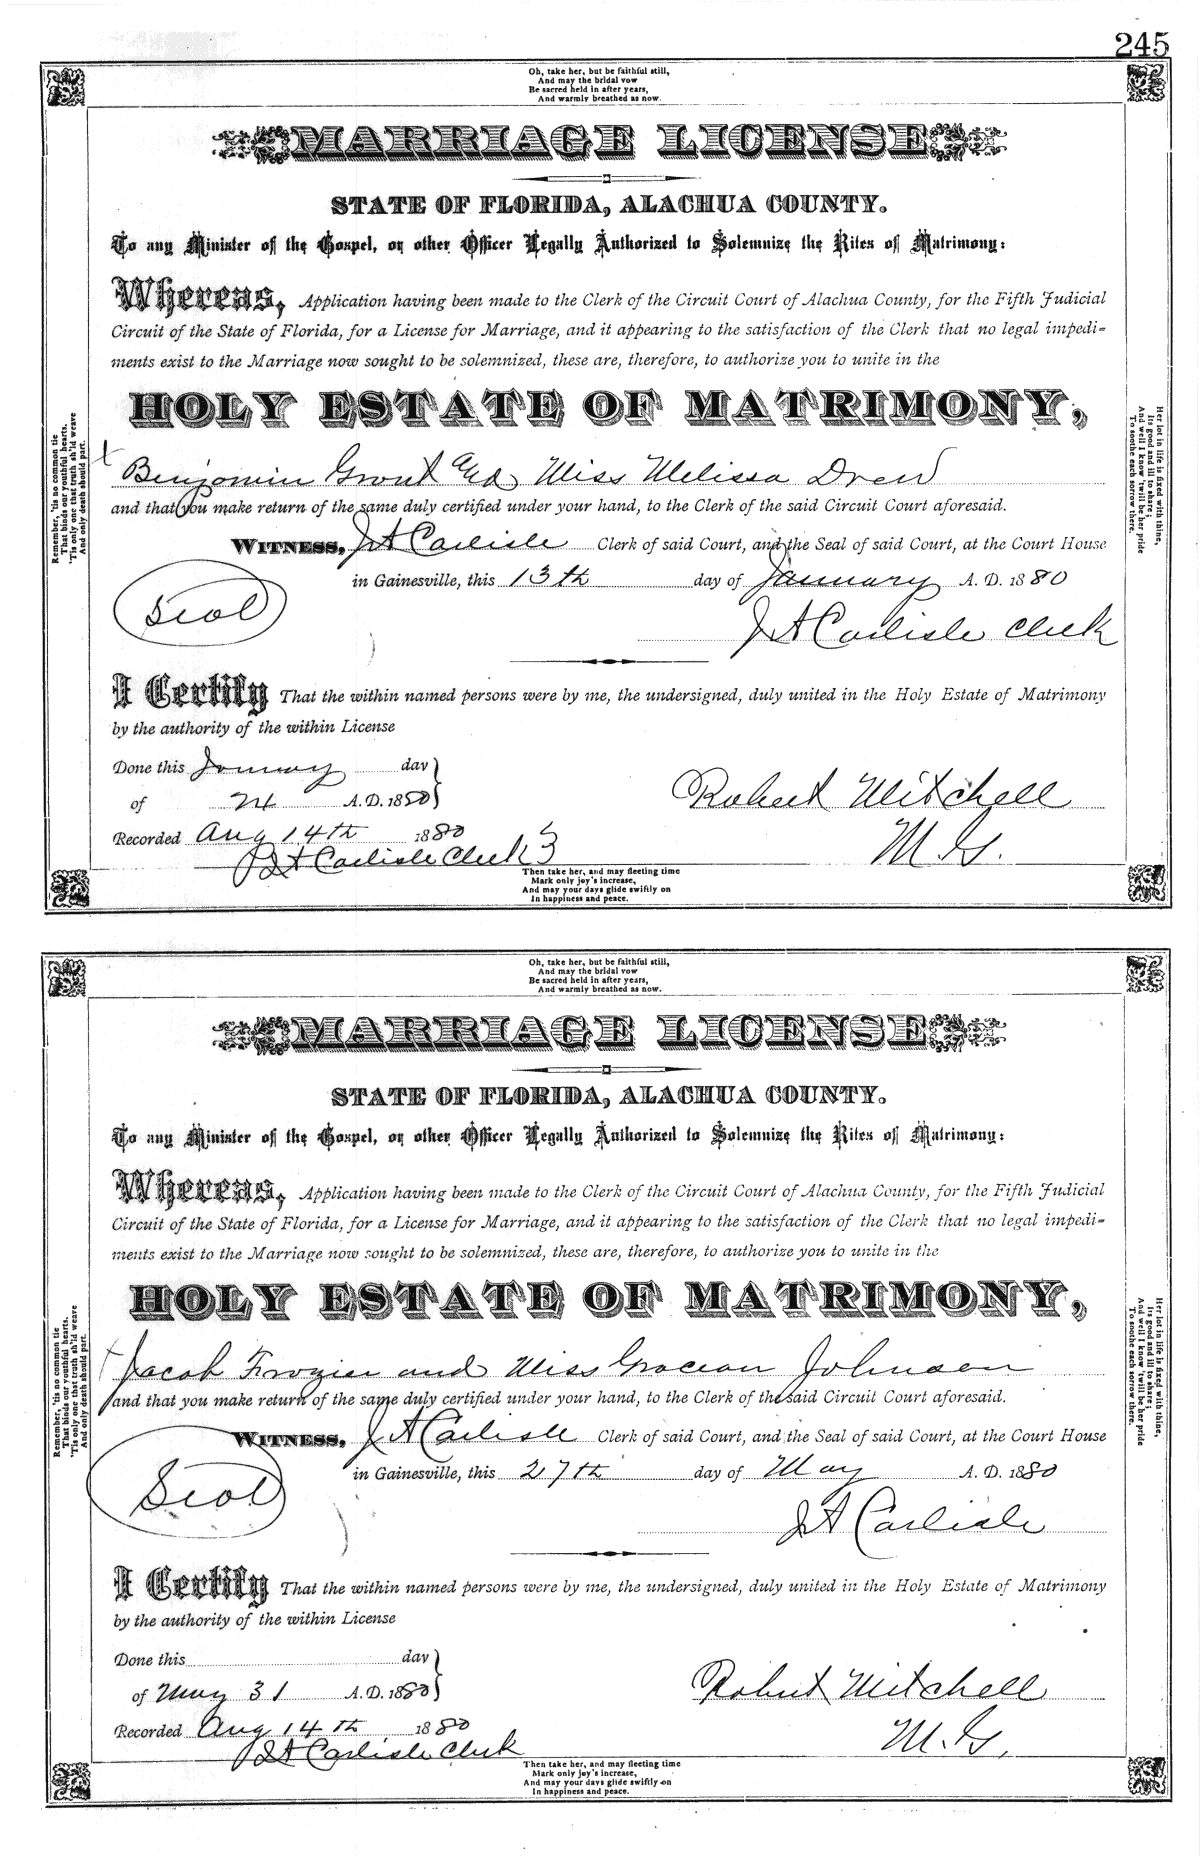 245
Oh, take her, but be faithful still,
And may the bridal vow
Be sacred held in after years,
And warmly breathed as now.
MARRIAGE LICENSE
STATE OF FLORIDA, ALACHUA COUNTY.
To any Minister of the Gospel, or other Officer Legally Authorized to Solemnize the Rites of Matrimony:
Whereas, Application having been made to the Clerk of the Circuit Court of Alachua County, for the Fifth Judicial
Circuit of the State of Florida, for a License for Marriage, and it appearing to the satisfaction of the Clerk that no legal impedi-
ments exist to the Marriage now sought to be solemnized, these are, therefore, to authorize you to unite in the
HOLY ESTATE OF MATRIMONY,
Benjamin Grant and Miss Melissa Drew
and that you make return of the same duly certified under your hand, to the Clerk of the said Circuit Court aforesaid.
WITNESS, J A Carlisle Clerk of said Court, and the Seal of said Court, at the Court House
in Gainesville, this 13th day of January A. D. 1880
Seal
J A Carlisle Clerk
I Certify That the within named persons were by me, the undersigned, duly united in the Holy Estate of Matrimony
by the authority of the within License
Done this January day
of 24 A.D. 1880
Robert Mitchell
Recorded Aug 14th 1880
M. G.
J A Carlisle Clerk
Then take her, and may fleeting time
Mark only joy's increase,
And may your days glide swiftly on
In happiness and peace.
Remember, 'tis no common tie
That binds our youthful hearts,
'Tis only one that truth sh'ld weave
And only death should part.
Her lot in life is fixed with thine,
Its good and ill to share;
And well I know 'twill be her pride
To soothe each sorrow there.
Oh, take her, but be faithful still,
And may the bridal vow
Be sacred held in after years,
And warmly breathed as now.
MARRIAGE LICENSE
STATE OF FLORIDA, ALACHUA COUNTY.
To any Minister of the Gospel, or other Officer Legally Authorized to Solemnize the Rites of Matrimony:
Whereas, Application having been made to the Clerk of the Circuit Court of Alachua County, for the Fifth Judicial
Circuit of the State of Florida, for a License for Marriage, and it appearing to the satisfaction of the Clerk that no legal impedi-
ments exist to the Marriage now sought to be solemnized, these are, therefore, to authorize you to unite in the
HOLY ESTATE OF MATRIMONY,
Jacob Frozier and Miss Johnson
and that you make return of the same duly certified under your hand, to the Clerk of the said Circuit Court aforesaid.
WITNESS, J A Carlisle Clerk of said Court, and the Seal of said Court, at the Court House
in Gainesville, this 27th day of May A. D. 1880
Seal
J A Carlisle
I Certify That the within named persons were by me, the undersigned, duly united in the Holy Estate of Matrimony
by the authority of the within License
Done this day
of May 31 A.D. 1880
Robert Mitchell
Recorded Aug 14th 1880
M. G.
J A Carlisle Clerk
Then take her, and may fleeting time
Mark only joy's increase,
And may your days glide swiftly on
In happiness and peace.
Remember, 'tis no common tie
That binds our youthful hearts,
'Tis only one that truth sh'ld weave
And only death should part.
Her lot in life is fixed with thine,
Its good and ill to share;
And well I know 'twill be her pride
To soothe each sorrow there.